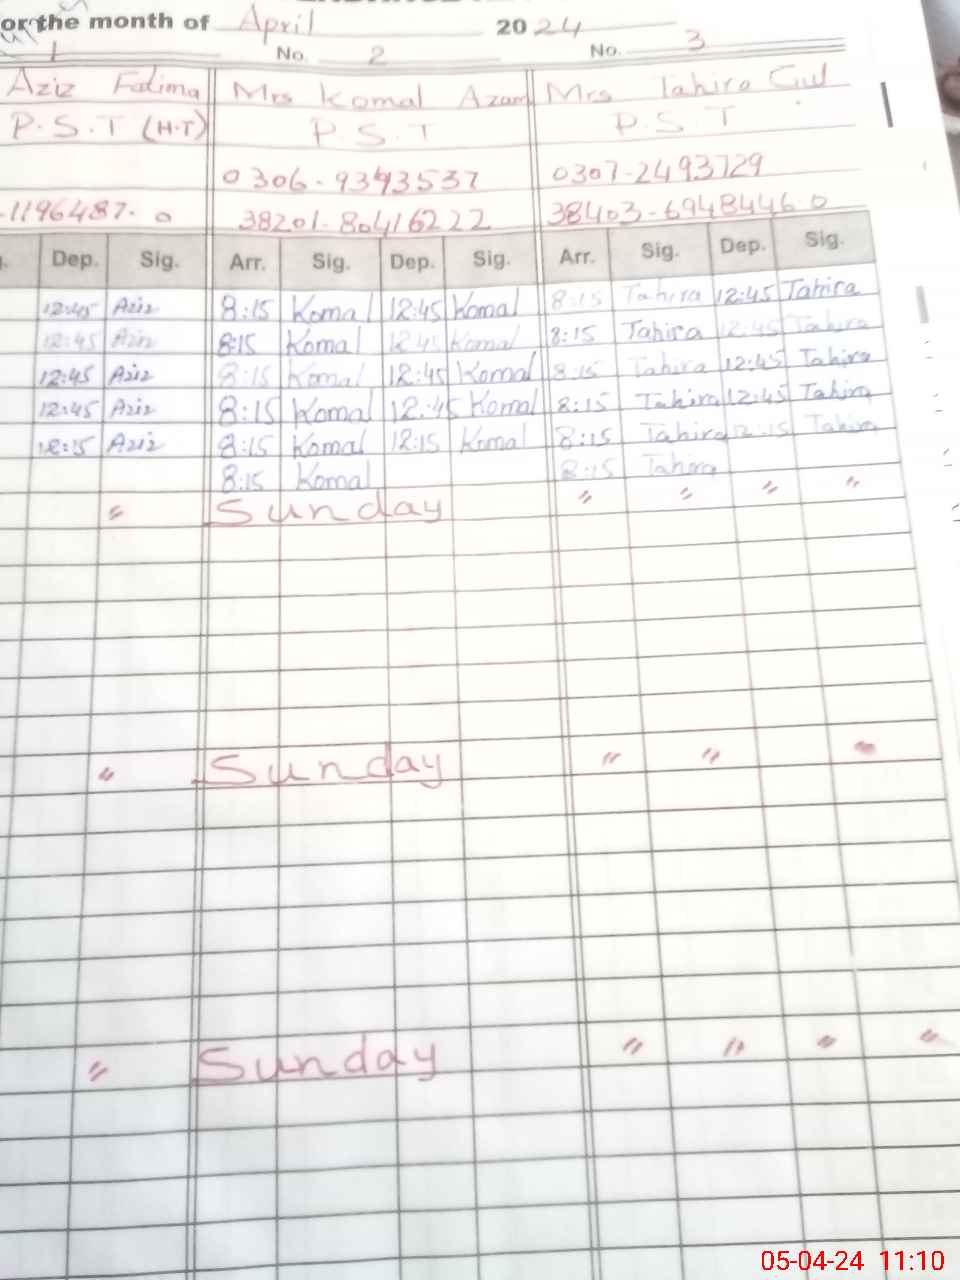 or the month of April 2024
1 No. 2 No. 3
Aziz Fatima Mrs Komal Azam Mrs Tahira Gul
P.S.T (H.T) P.S.T P.S.T
0306-9393537 0307-2493729
-1196487-0 38201-80416222 38403-6948446-0
Dep. Sig. Arr. Sig. Dep. Sig. Arr. Sig. Dep. Sig.
12:45 Aziz 8:15 Komal 12:45 Komal 8:15 Tahira 12:45 Tahira
12:45 Aziz 8:15 Komal 12:45 Komal 8:15 Tahira 12:45 Tahira
12:45 Aziz 8:15 Komal 12:45 Komal 8:15 Tahira 12:45 Tahira
12:45 Aziz 8:15 Komal 12:45 Komal 8:15 Tahira 12:45 Tahira
12:15 Aziz 8:15 Komal 12:15 Komal 8:15 Tahira 12:15 Tahira
8:15 Komal 8:15 Tahira
" Sunday " " " "
" Sunday " " "
" Sunday " " " "
05-04-24 11:10